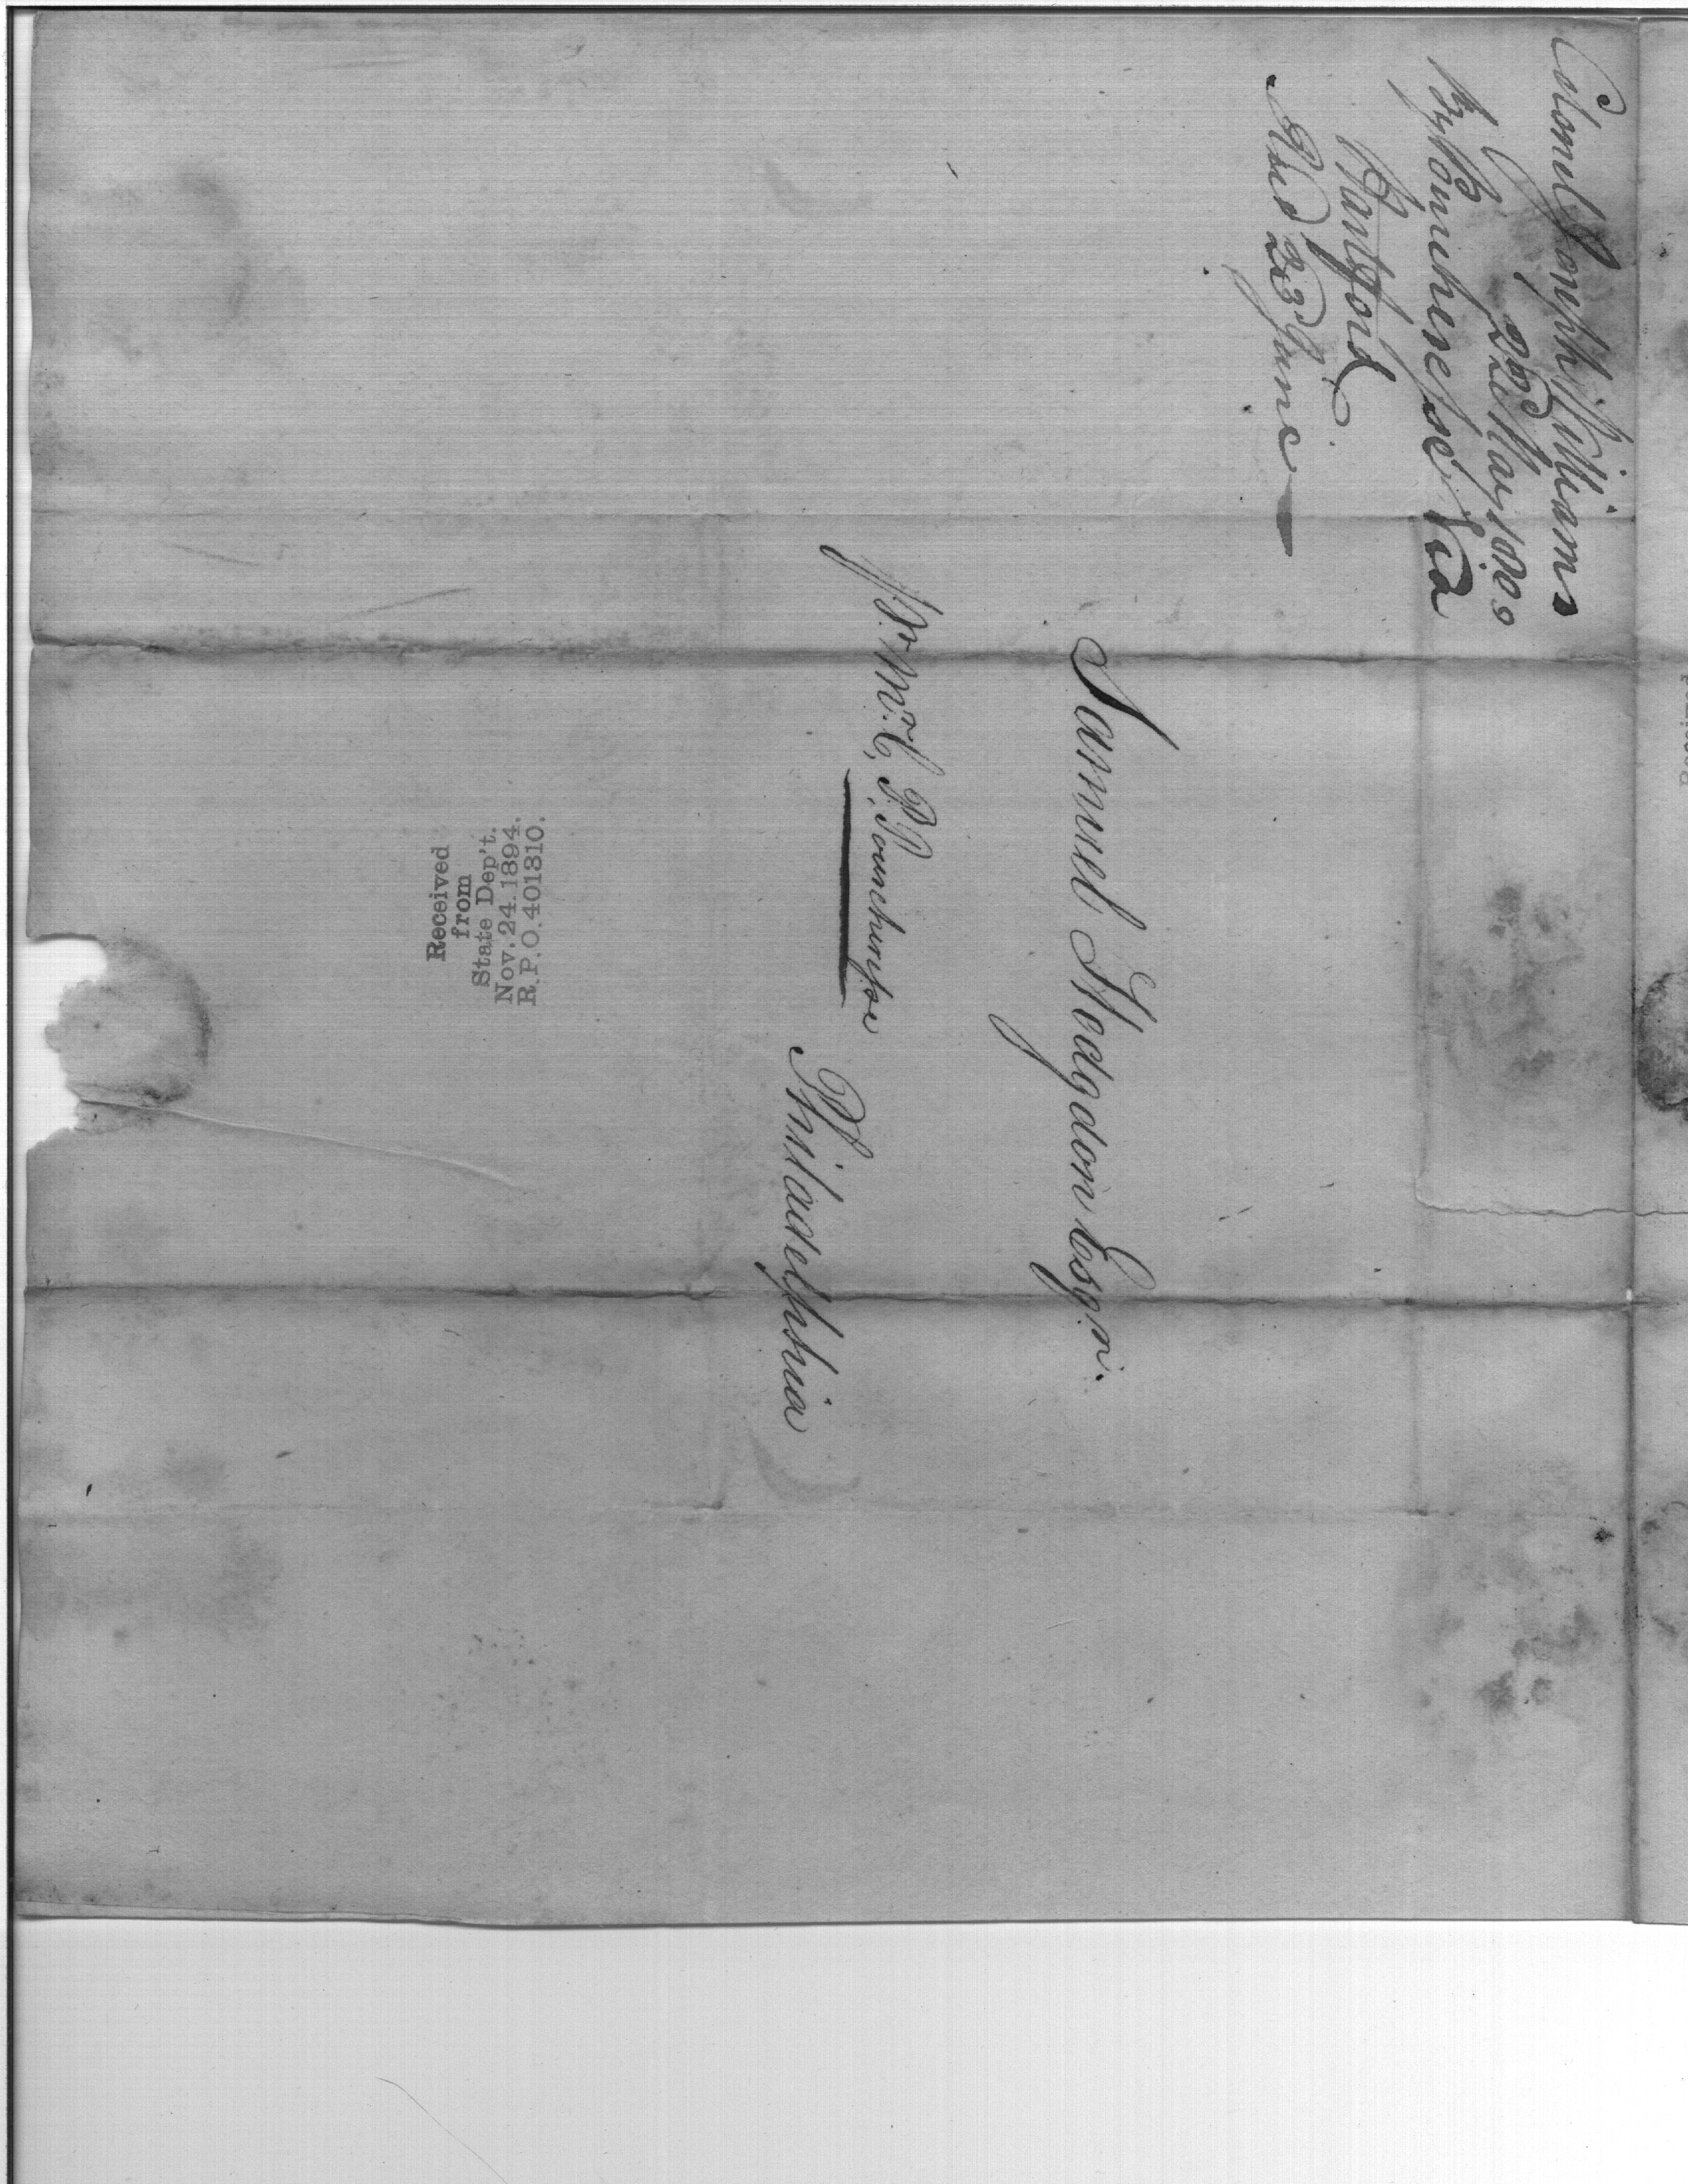 Colonel Joseph Williams
22d May 1800
By Bouncherisse Via
Hartford
Recd 23d June
Samuel Hodgdon Esqr.
Pr. Mr. C. P. Bouncherisse
Philadelphia
Received
from
State Dep't.
Nov. 24. 1894.
R.P.O. 401310.